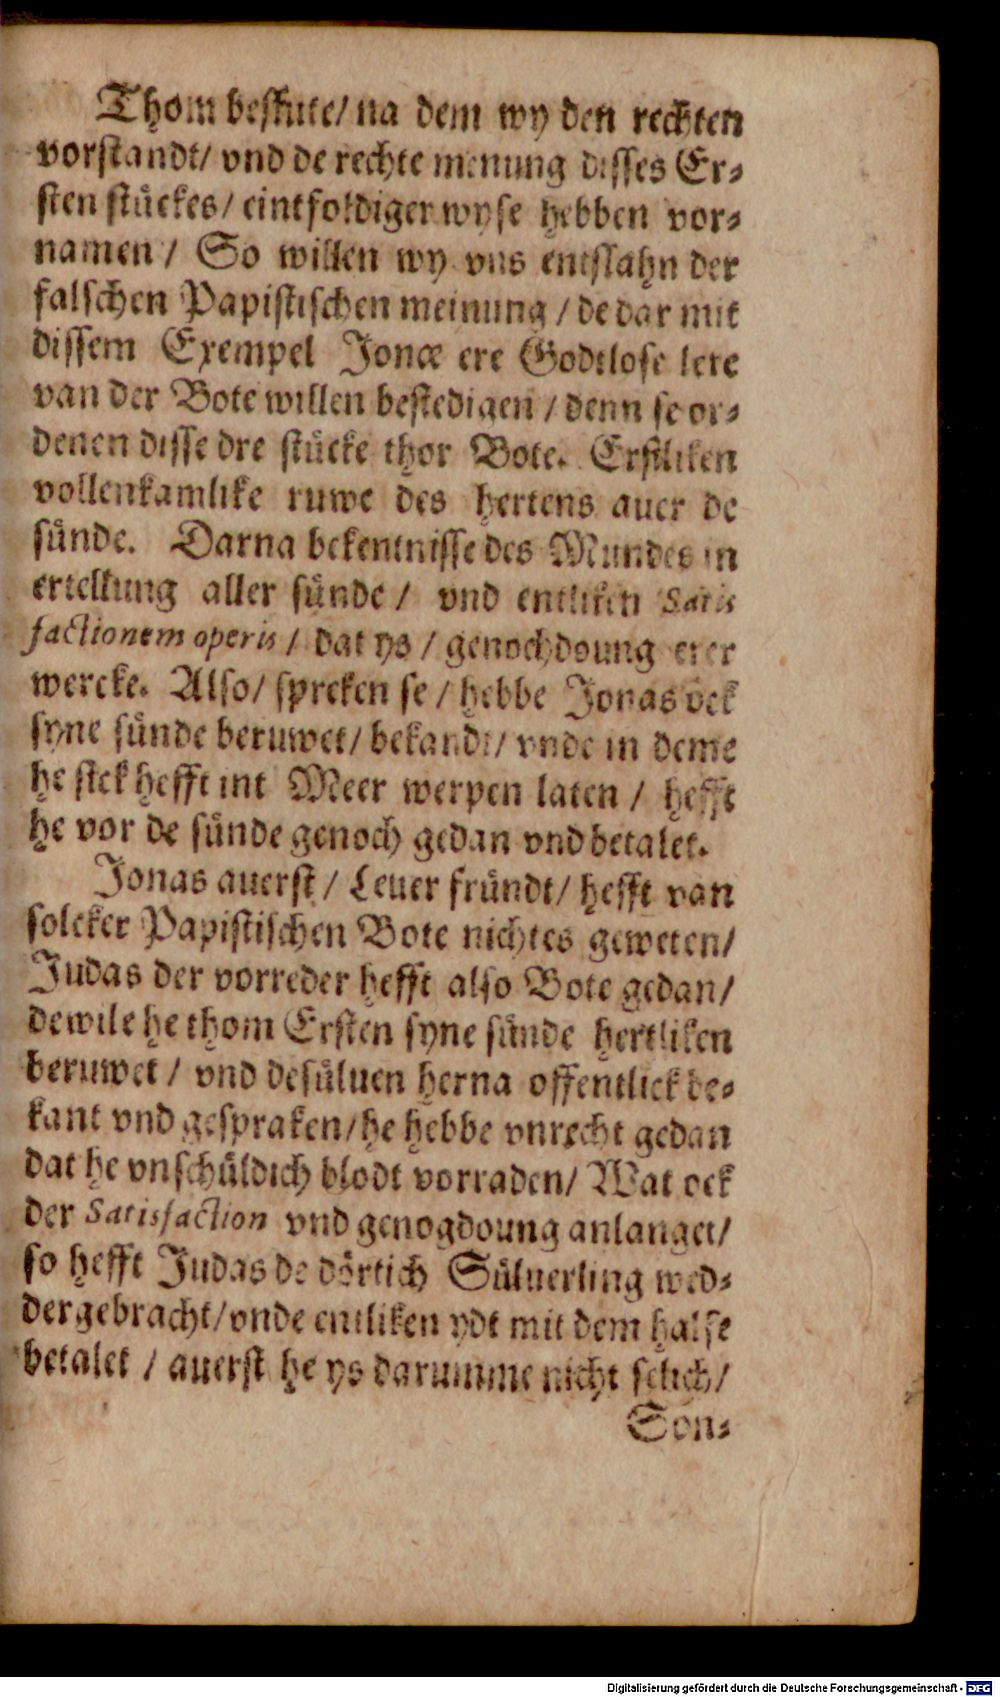 Thom beslute/ na dem wy den rechten
vorstandt/ vnd de rechte menung disses Er⸗
sten stückes/ eintfoldiger wyse hebben vor⸗
namen / So willen wy vns entslahn der
falschen Papistischen meinung / de dar mit
dissem Exempel Jonæ ere Godtlose lere
van der Bote willen bestedigen / denn se or⸗
denen disse dre stücke thor Bote. Erstliken
vollenkamlike ruwe des hertens auer de
sünde. Darna bekentnisse des Mundes in
ertellung aller sünde / vnd entliken Satis
factionem operis / dat ys / genochdoung erer
wercke. Also/ spreken se / hebbe Jonas ock
syne sünde beruwet/ bekandt/ vnde in deme
he sick hefft int Meer werpen laten / hefft
he vor de sünde genoch gedan vnd betalet.
Jonas auerst / Leuer fründt/ hefft van
solcker Papistischen Bote nichtes geweten/
Judas der vorreder hefft also Bote gedan/
dewile he thom Ersten syne sünde hertliken
beruwet / vnd desüluen herna offentlick be⸗
kant vnd gespraken/ he hebbe vnrecht gedan
dat he vnschüldich blodt vorraden/ Wat ock
der Satisfaction vnd genogdoung anlanget/
so hefft Judas de dörtich Süluerling wed⸗
dergebracht/ vnde entliken ydt mit dem halse
betalet / auerst he ys darumme nicht selich/
Son⸗
Digitalisierung gefördert durch die Deutsche Forschungsgemeinschaft - DFG